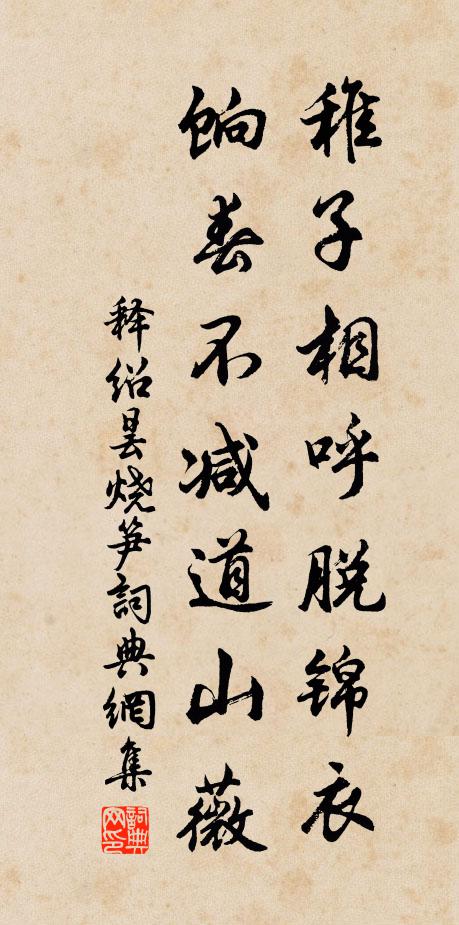 稚子相呼脱锦衣
饷春不减道山薇
释绍昙烧笋詞典網集
詞典网印